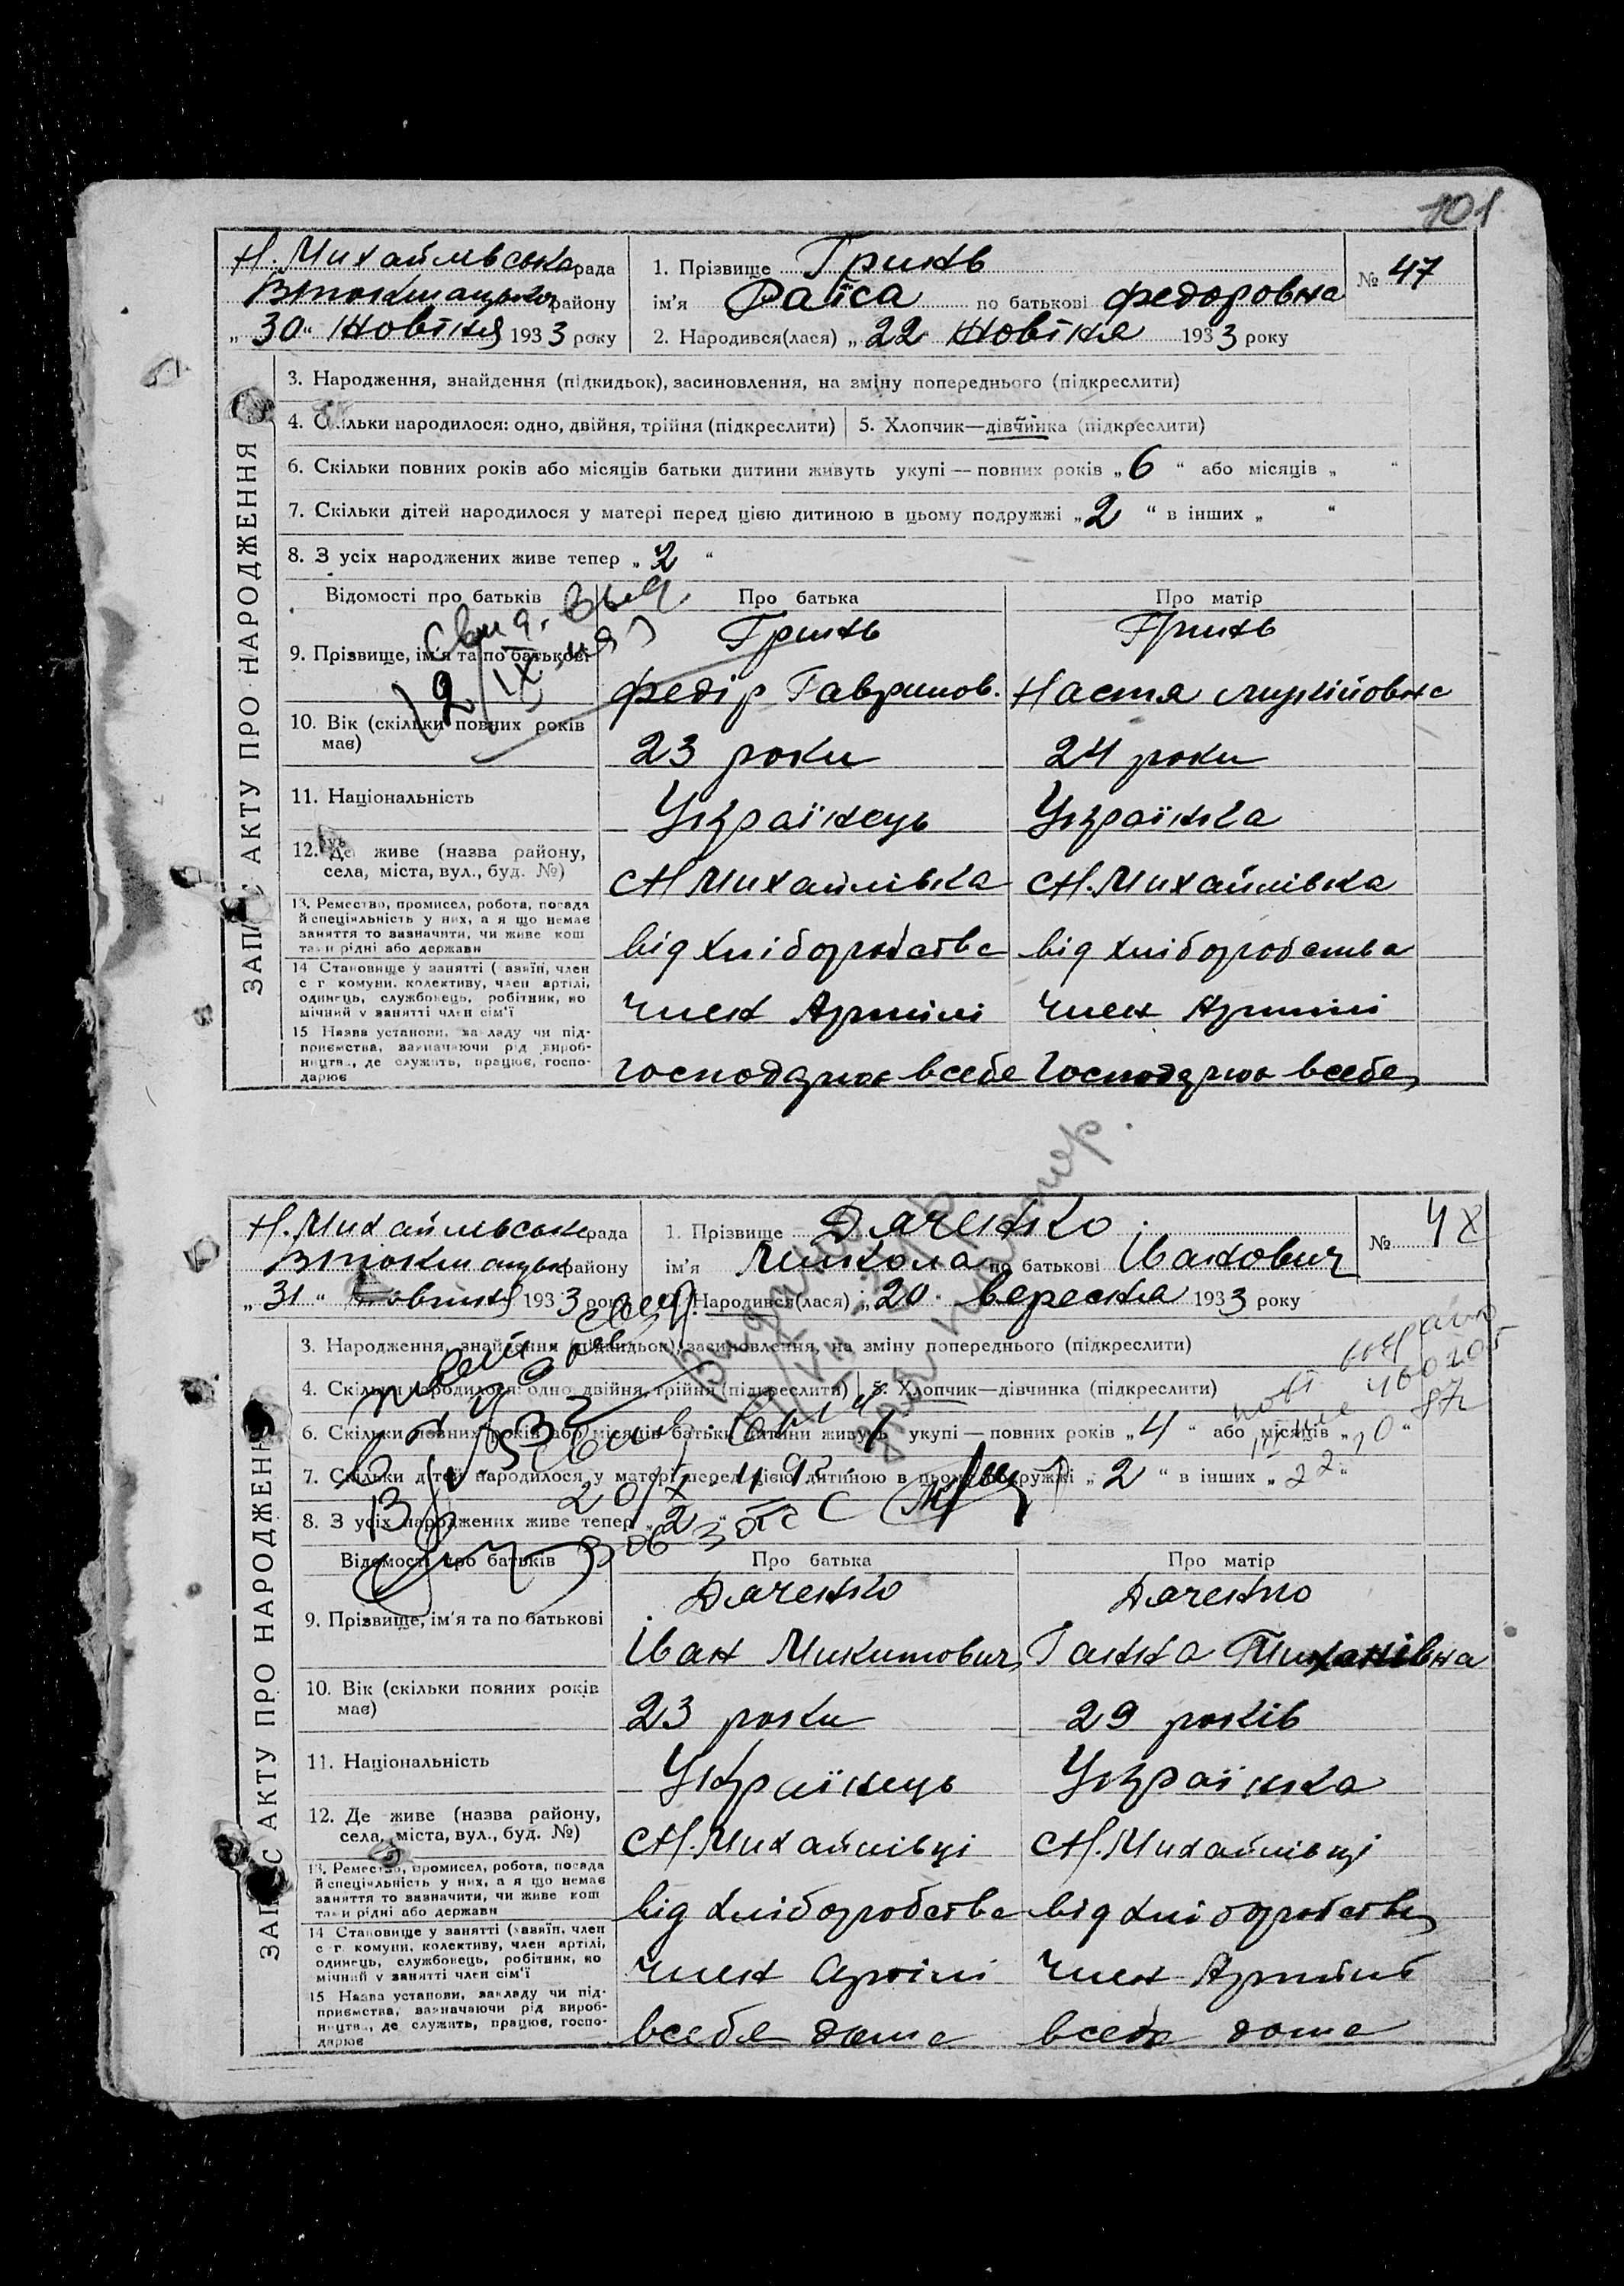 101
Н. Михайлівська рада
району
„30“ Новтня 1933 року
1. Прізвище Гринь
ім'я Раїса по батькові Федоровна
№ 47
2. Народився(лася) „22 Жовтня 1933 року
ЗАПИС АКТУ ПРО НАРОДЖЕННЯ
3. Народження, знайдення (підкидьок), засиновлення, на зміну попереднього (підкреслити)
4. Скільки народилося: одно, двійня, трійня (підкреслити) 5. Хлопчик—дівчинка (підкреслити)
6. Скільки повних років або місяців батьки дитини живуть укупі — повних років „6“ або місяців „ “
7. Скільки дітей народилося у матері перед цією дитиною в цьому подружжі „2“ в інших „ “
8. З усіх народжених живе тепер „2“
Відомості про батьків Про батька Про матір
9. Прізвище, ім'я та по батькові
Гринь Гринь
Федір Гаврилов. Настя
10. Вік (скільки повних років
має)
23 роки 24 роки
11. Національність
Українець Українка
12. Де живе (назва району,
села, міста, вул., буд. №)
Н Михайлівка Н. Михайлівка
13. Ремество, промисел, робота, посада
й спеціяльність у них, а я що немає
заняття то зазначити, чи живе кош
тами рідні або держави
від хліборобства від хліборобства
14 Становище у занятті (хазяїн, член
с г комуни, колективу, член артілі,
одинець, службовець, робітник, по
мічний у занятті член сім'ї
член Артілі член Артілі
15 Назва установи, закладу чи під-
приємства, зазначаючи рід вироб-
ництва, де служить, працює, госпо-
дарює
господарює всебе господарює всебе
Н. Михайлівська рада
району
„31“ 1933 року
1. Прізвище Дяченко
ім'я Микола по батькові Іванович
№ 48
2. Народився(лася) „20 вересня 1933 року
ЗАПИС АКТУ ПРО НАРОДЖЕННЯ
3. Народження, знайдення (підкидьок), засиновлення, на зміну попереднього (підкреслити)
4. Скільки народилося: одно, двійня, трійня (підкреслити) 5. Хлопчик—дівчинка (підкреслити)
6. Скільки повних років або місяців батьки дитини живуть укупі — повних років „4“ або місяців „ “
7. Скільки дітей народилося у матері перед цією дитиною в цьому подружжі „2“ в інших „ “
8. З усіх народжених живе тепер „2“
Відомості про батьків Про батька Про матір
9. Прізвище, ім'я та по батькові
Дяченко Дяченко
Іван Микитович Ганна
10. Вік (скільки повних років
має)
23 роки 29 років
11. Національність
Українець Українка
12. Де живе (назва району,
села, міста, вул., буд. №)
Н. Михайлівці Н. Михайлівці
13. Ремество, промисел, робота, посада
й спеціяльність у них, а я що немає
заняття то зазначити, чи живе кош
тами рідні або держави
від хліборобства від хліборобства
14 Становище у занятті (хазяїн, член
с г комуни, колективу, член артілі,
одинець, службовець, робітник, по
мічний у занятті член сім'ї
член Артілі член Артілі
15 Назва установи, закладу чи під-
приємства, зазначаючи рід вироб-
ництва, де служить, працює, госпо-
дарює
всебе дома всебе дома